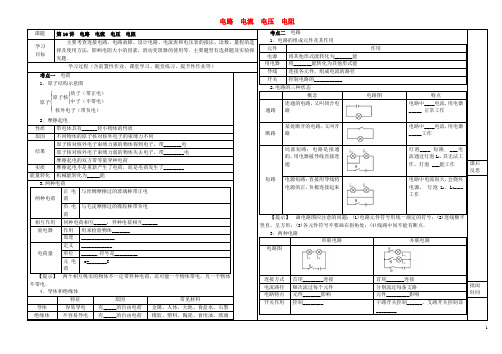 电路 电流 电压 电阻
课题
第16讲 电路 电流 电压 电阻
学习目标
主要考查连接电路、电路故障、设计电路、电流表和电压表的接法、读数、量程的选择及使用方法、影响电阻大小的因素、滑动变阻器的使用等。主要题型有选择题及实验探究题。
学习过程(含前置性作业、课堂学习、随堂练习、提升性作业等)
考点一 电荷
1.原子结构示意图
原子 原子核 质子（带正电） 中子（不带电）
核外电子（带负电）
2.摩擦起电
性质 带电体具有______轻小物体的性质
原因 不同物体的原子核对核外电子的束缚力不同
结果 原子核对核外电子束缚力强的物体得到电子，带______电
原子核对核外电子束缚力弱的物体失去电子，带______电
摩擦起电的双方带等量异种电荷
实质 摩擦起电并不是重新产生了电荷，而是电荷发生了______
能量转化 机械能转化为____能
3.两种电荷
两种电荷 正电荷 与丝绸摩擦过的玻璃棒带正电
负电荷 与毛皮摩擦过的橡胶棒带负电
相互作用 同种电荷相互______，异种电荷相互______
验电器 作用 用来检验物体______
原理 ____________
电荷量 定义 __________
单位 ______ 符号是________
元电荷 e=______C
【提示】 两个相互吸引的物体不一定带异种电荷，还可能一个物体带电，另一个物体不带电。
4．导体和绝缘体
特征 原因 常见材料
导体 容易导电 有____的自由电荷 金属、人体、大地、食盐水、石墨
绝缘体 不容易导电 有____的自由电荷 橡胶、塑料、陶瓷、食用油、玻璃
考点二 电路
1.电路的组成元件及其作用
元件 作用
电源 将其他形式能转化为______能
用电器 将______能转化为其他形式能
导线 连接各元件，组成电流的路径
开关 控制电路的__________
2.电路的三种状态
概念 电路图 特点
通路 连通的电路，又叫闭合电路 电路中____电流，用电器____ 正常工作
断路 某处断开的电路，又叫开路 电路中____电流，用电器____工作
短路 局部短路：电路是接通的，用电器被导线直接连通
电源短路：直接用导线将电源的正、负极连接起来 电路中电流很大，会烧坏电源，
【提示】 画电路图应注意的问题：(1)电路元件符号用统一规定的符号；(2)连线横平竖直，呈方形；(3)各元件符号不要画在拐角处；(4)线路中间不能有断点。
3．两种电路
串联电路 并联电路
电路图
连接方式 首尾______连接 首首______连接
电流路径 顺次流过每个元件 分别流过每条支路
电路特点 元件______影响 元件________影响
开关作用 控制________ 干路开关控制____，支路开关控制该________
课后反思
批阅时间
1